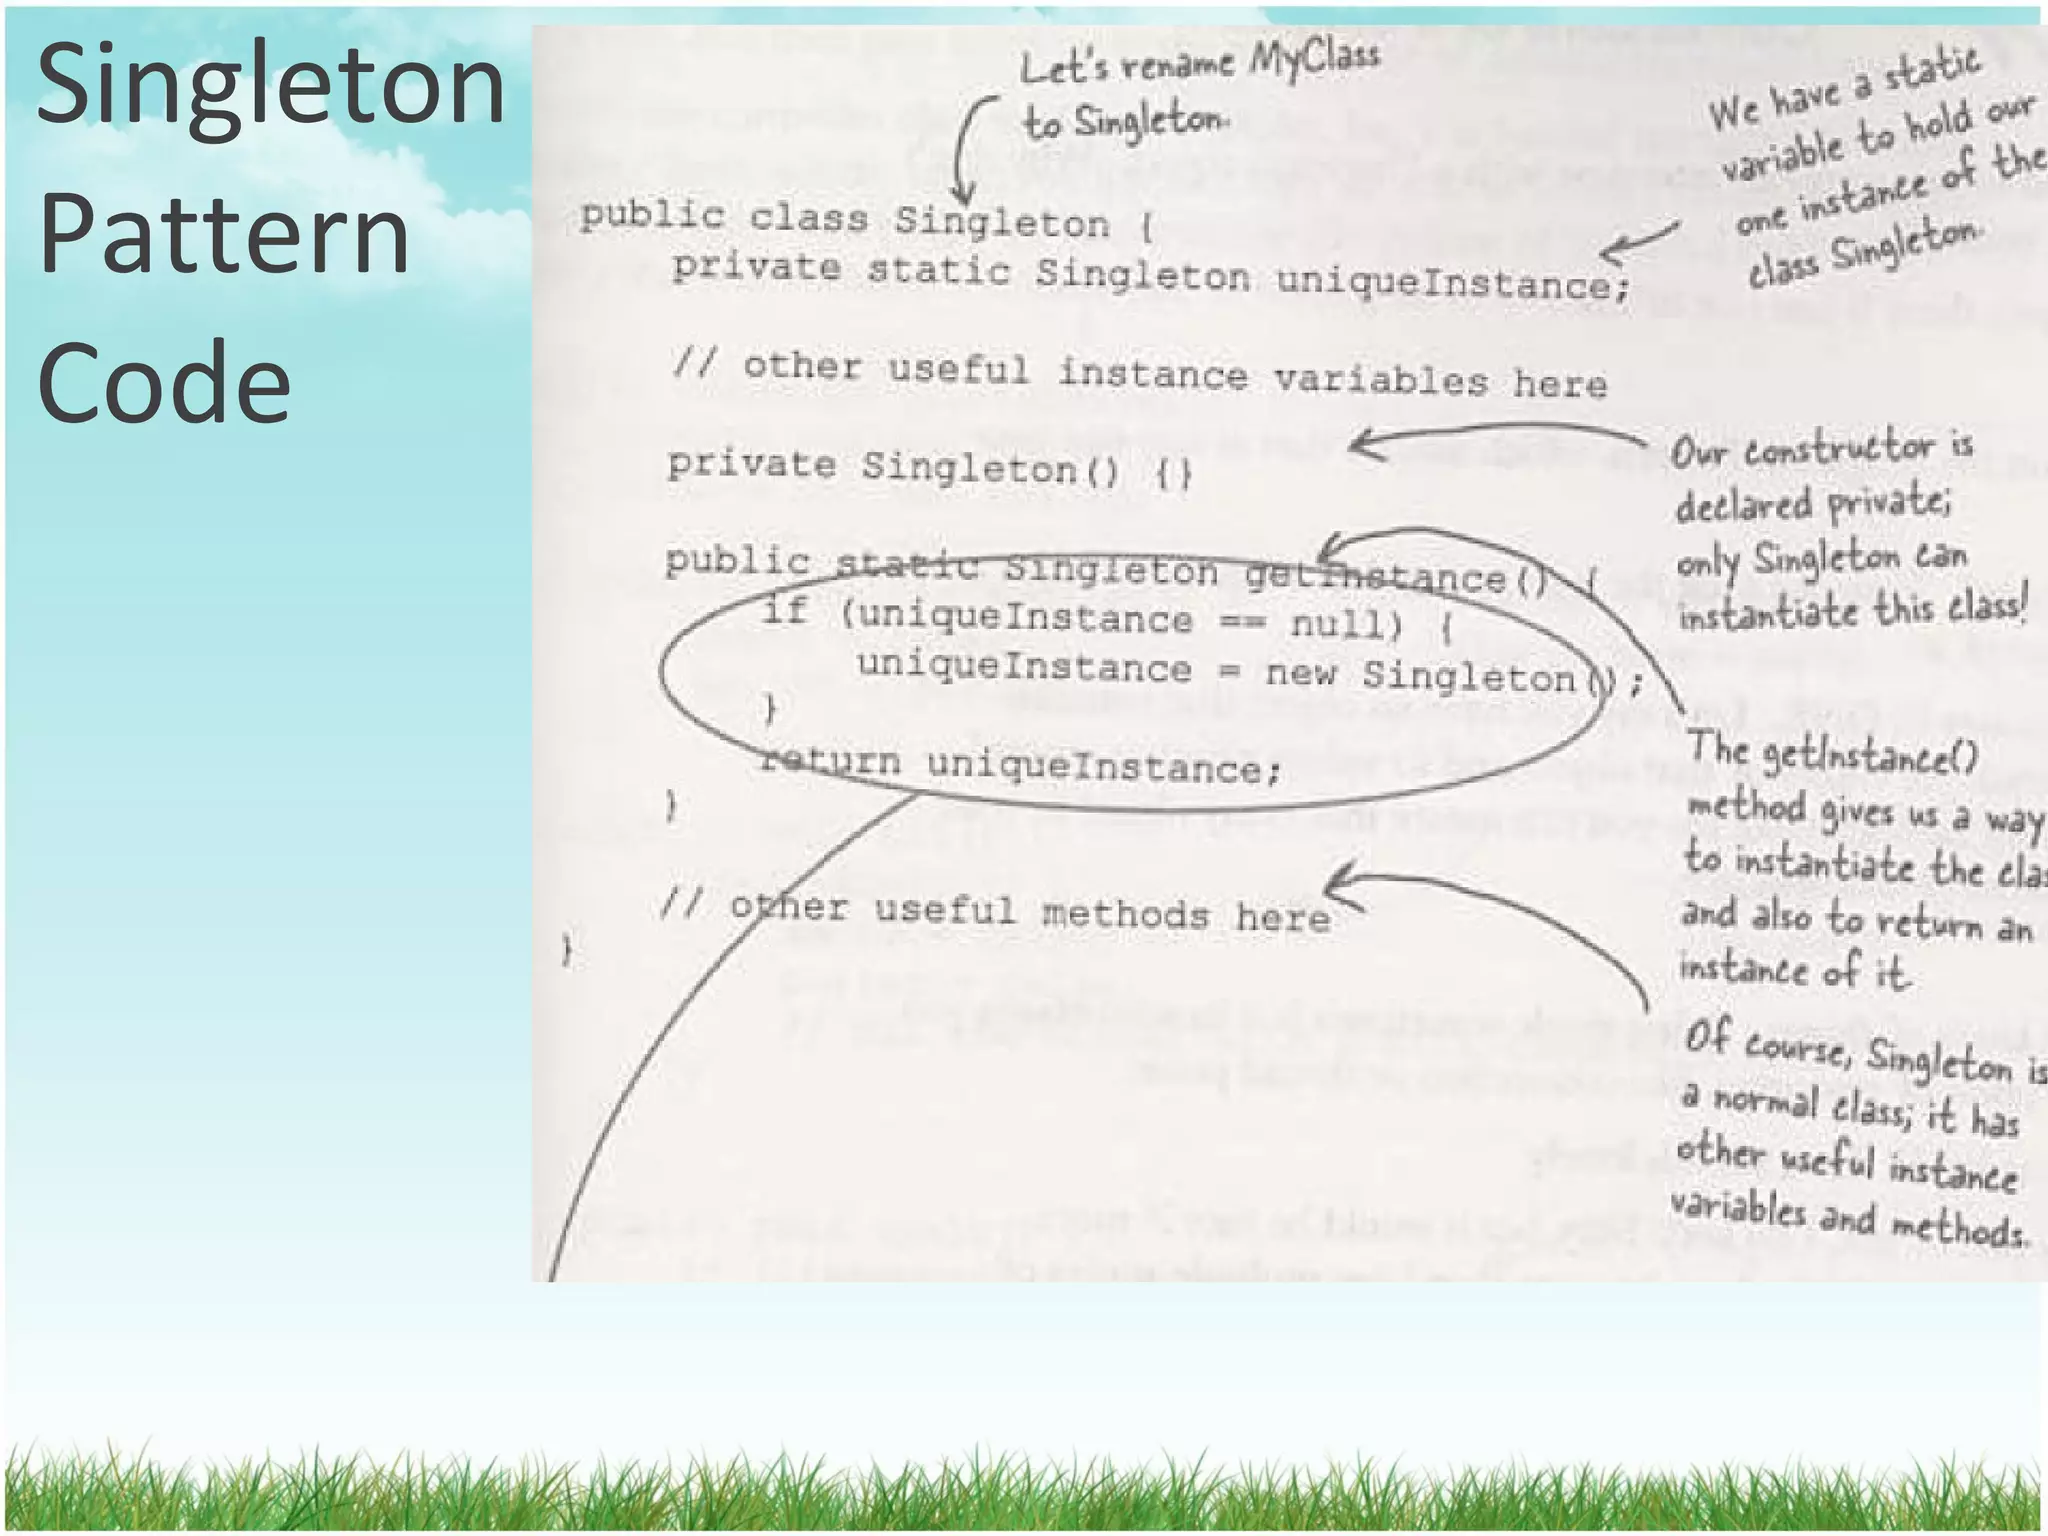 Singleton
Pattern
Code
Let's rename MyClass
to Singleton.
We have a static
variable to hold our
one instance of the
class Singleton.
public class Singleton {
private static Singleton uniqueInstance;
// other useful instance variables here
private Singleton() {}
Our constructor is
declared private;
only Singleton can
instantiate this class!
public static Singleton getInstance() {
if (uniqueInstance == null) {
uniqueInstance = new Singleton();
}
return uniqueInstance;
}
The getInstance()
method gives us a way
to instantiate the clas
and also to return an
instance of it.
// other useful methods here
}
Of course, Singleton is
a normal class; it has
other useful instance
variables and methods.